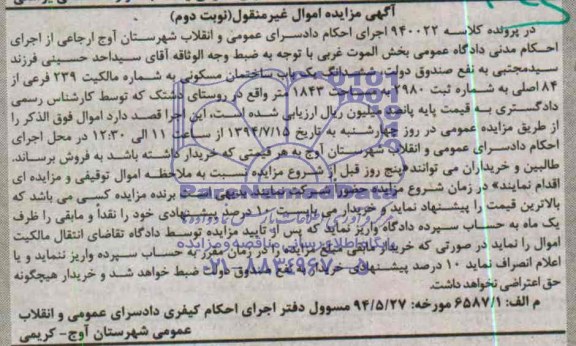 آگهی مزایده اموال غیرمنقول(نوبت دوم)
در پرونده کلاسه ۹۴۰۰۲۲ اجرای احکام دادسرای عمومی و انقلاب شهرستان آوج ارجاعی از اجرای
احکام مدنی دادگاه عمومی بخش الموت غربی با توجه به ضبط وجه الوثاقه آقای سیداحد حسینی فرزند
سیدمجتبی به نفع صندوق دولت، ششدانگ یک باب ساختمان مسکونی به شماره مالکیت ۲۳۹ فرعی از
۸۴ اصلی به شماره ثبت ۲۹۸۰ به مساحت ۱۸۴۳ متر واقع در روستای دشتک که توسط کارشناس رسمی
دادگستری به قیمت پایه پانصد میلیون ریال ارزیابی شده است، این اجرا قصد دارد اموال فوق الذکر را
از طریق مزایده عمومی در روز چهارشنبه به تاریخ ۱۳۹۴/۷/۱۵ از ساعت ۱۱ الی ۱۲:۳۰ در محل اجرای
احکام دادسرای عمومی و انقلاب شهرستان آوج به هر قیمتی که خریدار داشته باشد به فروش برساند.
طالبین و خریداران می توانند «پنج روز قبل از شروع مزایده نسبت به ملاحظه اموال توقیفی و مزایده ای
اقدام نمایند» در زمان شروع مزایده حضور و شرکت نمایند. بدیهی است برنده مزایده کسی می باشد که
بالاترین قیمت را پیشنهاد نماید و خریدار می بایست ۱۰ درصد پیشنهادی خود را نقدا و مابقی را ظرف
یک ماه به حساب سپرده دادگاه واریز نماید که پس از تایید مزایده توسط دادگاه تقاضای انتقال مالکیت
اموال را نماید در صورتی که خریدار مابقی مبلغ مزایده را در زمان مقرر به حساب سپرده واریز ننماید و یا
اعلام انصراف نماید ۱۰ درصد پیشنهادی خریدار به نفع صندوق دولت ضبط خواهد شد و خریدار هیچگونه
حق اعتراضی نخواهد داشت.
م الف: ۶۵۸۷/۱ مورخه: ۹۴/۵/۲۷ مسوول دفتر اجرای احکام کیفری دادسرای عمومی و انقلاب
عمومی شهرستان آوج- کریمی
ParsNamadData
پایگاه اطلاع رسانی مناقصه و مزایده
۰۲۱-۸۸۳۴۹۶۷۰